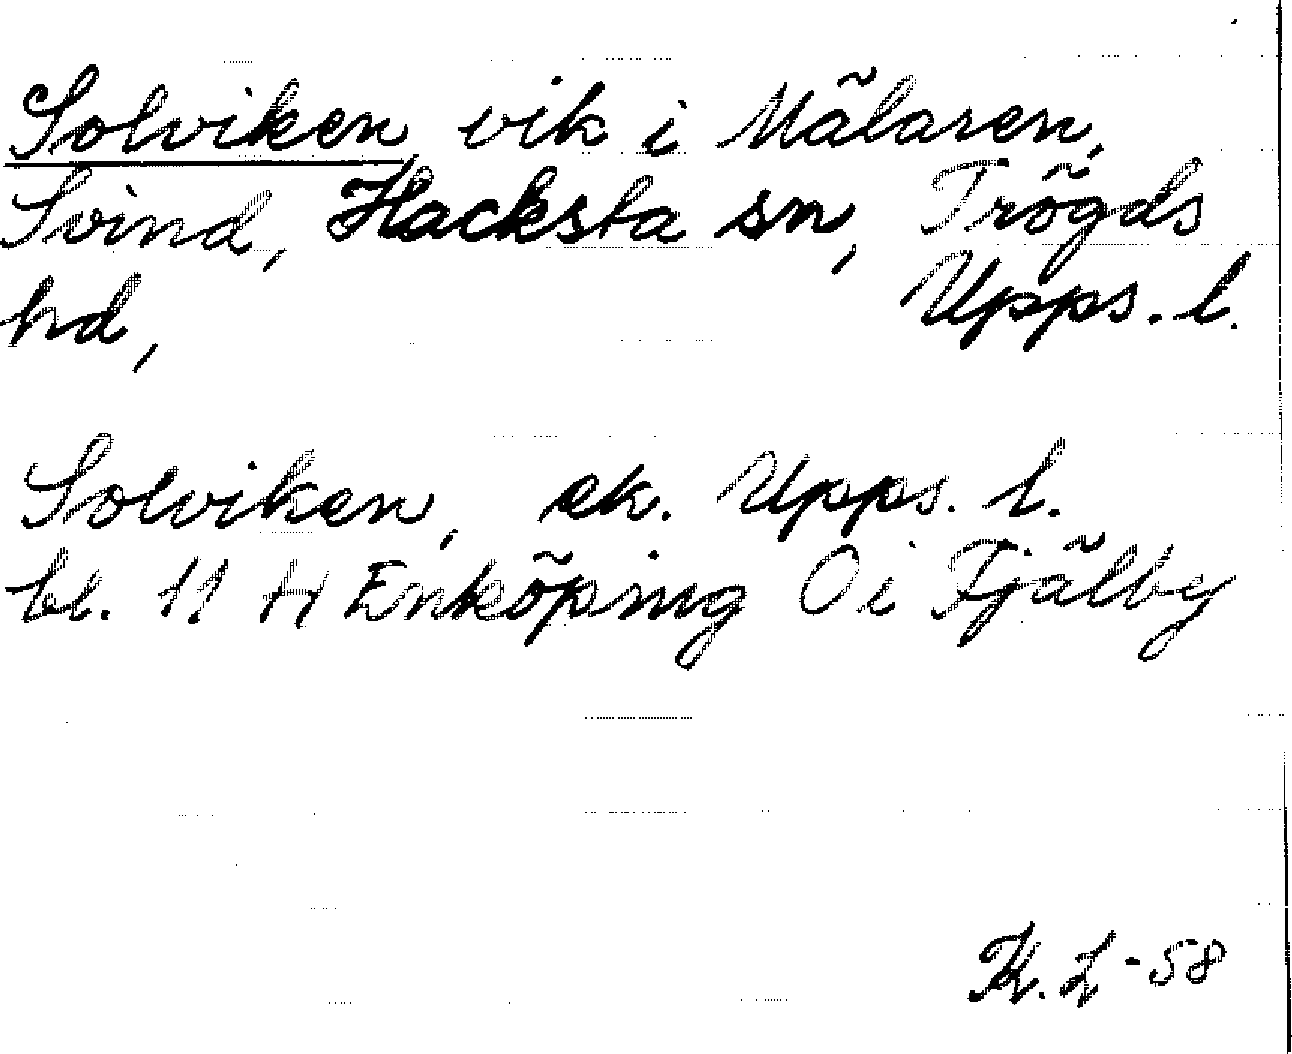 Solviken vik i Mälaren,
Svind, Hacksta sn, Trögds
hd, Upps. l.
Solviken, ek. Upps. l.
bl. 11 H Enköping Oi Fjälby
K. L-58